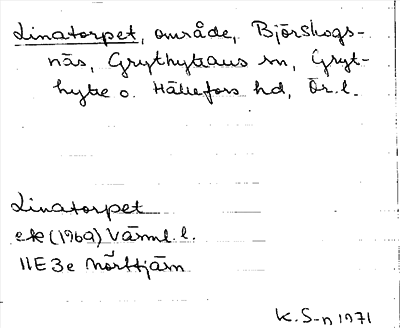 Linatorpet, område, Björskogs-
näs, Grythyttans sn, Gryt-
hytte o. Hällefors hd, Ör. l.
Linatorpet
ek (1969) Värml. l.
11E 3e Norttjärn
K. S-n 1971